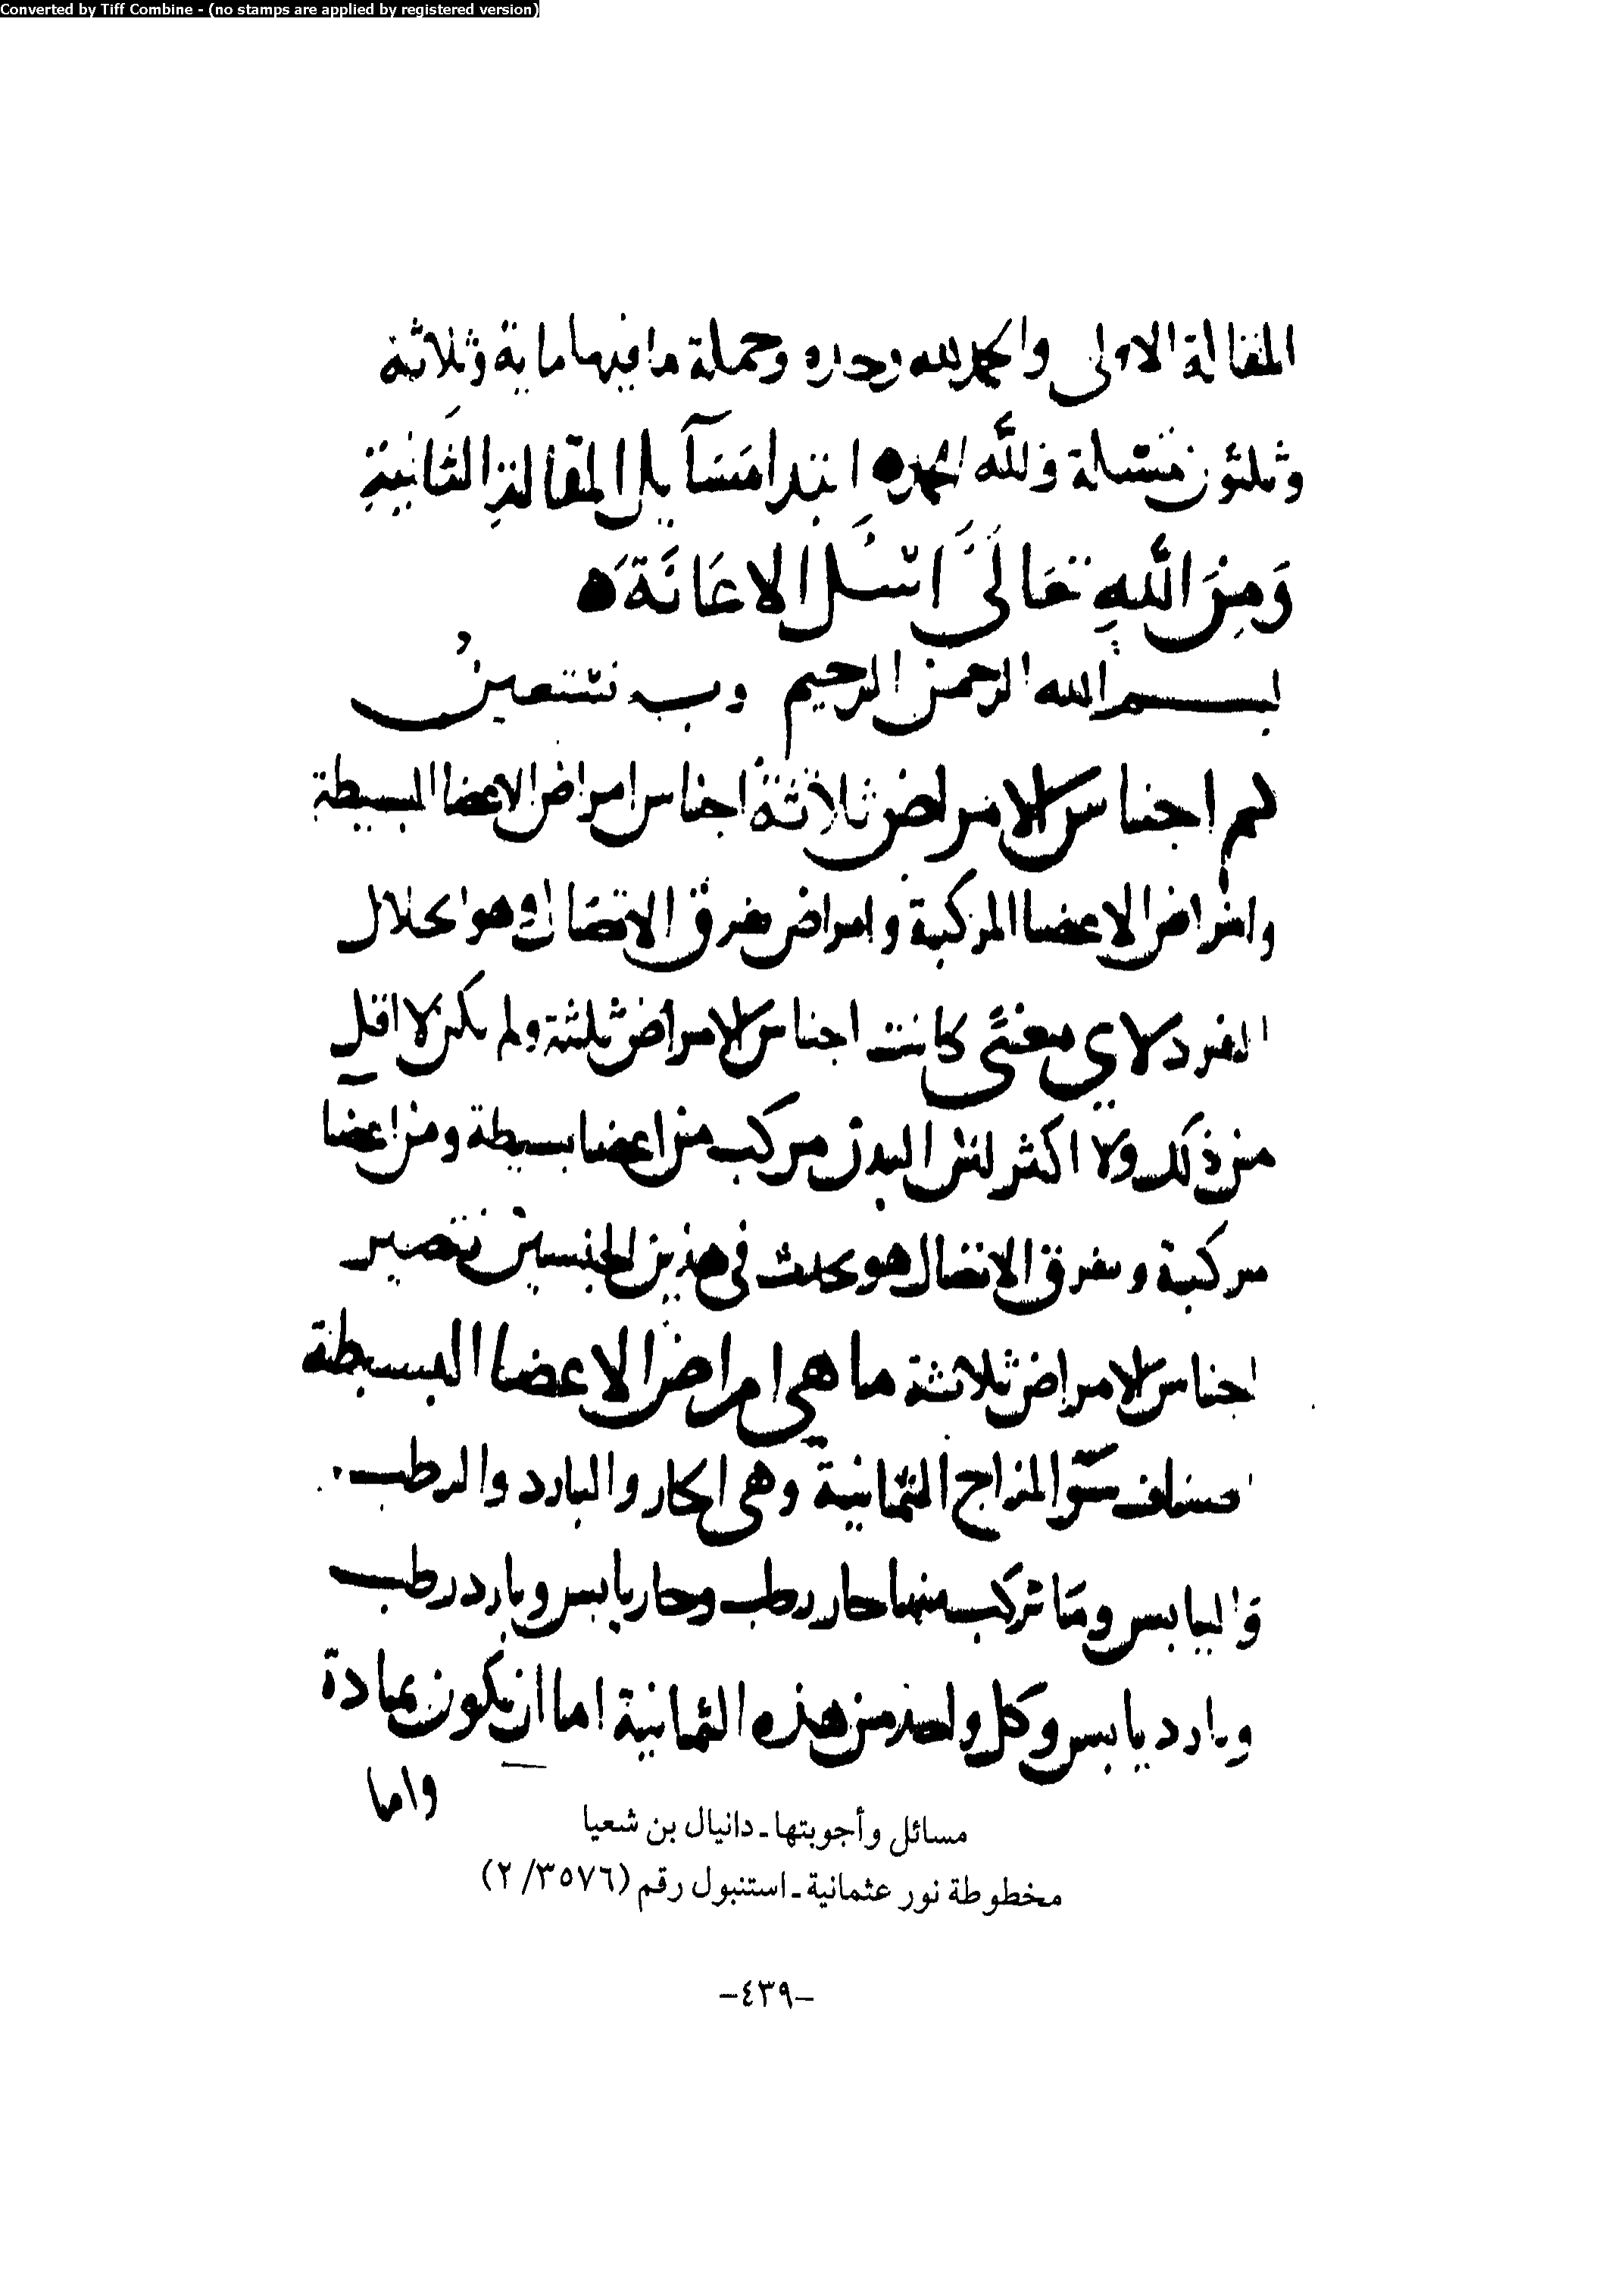 Converted by Tiff Combine - (no stamps are applied by registered version)
المقالة الاولى والحمد لله وحده وجملة ما فيها ماية وثلاثة
وثلثون مسئلة ولله الحمد ابتدا مسآيل المقالة الثانية
وَمِنَ اللهِ تعَالىَ اسْئَل الاعَانَة
بسم الله الرحمن الرحيم وبه نستعين
كم اجناس الامراض ثلاثة اجناس امراض الاعضا البسيطة
وامراض الاعضا المركبة وامراض تفرق الاتصال وهو انحلال
الفرد لاي معنًى كانت اجناس الامراض ثلثة ولم يكن لا اقل
من ذلك ولا اكثر لئن البدن مركب من اعضا بسيطة ومن اعضا
مركبة وتفرق الاتصال هو يحدث في هذين الجنسين فتصير
اجناس الامراض ثلاثة ما هي امراض الاعضا البسيطة
اصناف سوٓ المزاج الثمانية وهي الحار والبارد والرطب
واليابس وما تركب منها حار رطب وحار يابس وبارد رطب
وبارد يابس وكل واحد من هذه الثمانية اما ان يكون بمادة
واما
مسائل وأجوبتها ـ دانيال بن شعيا
مخطوطة نور عثمانية ـ استنبول رقم (٣٥٧٦/ ٢)
–٤٣٩–